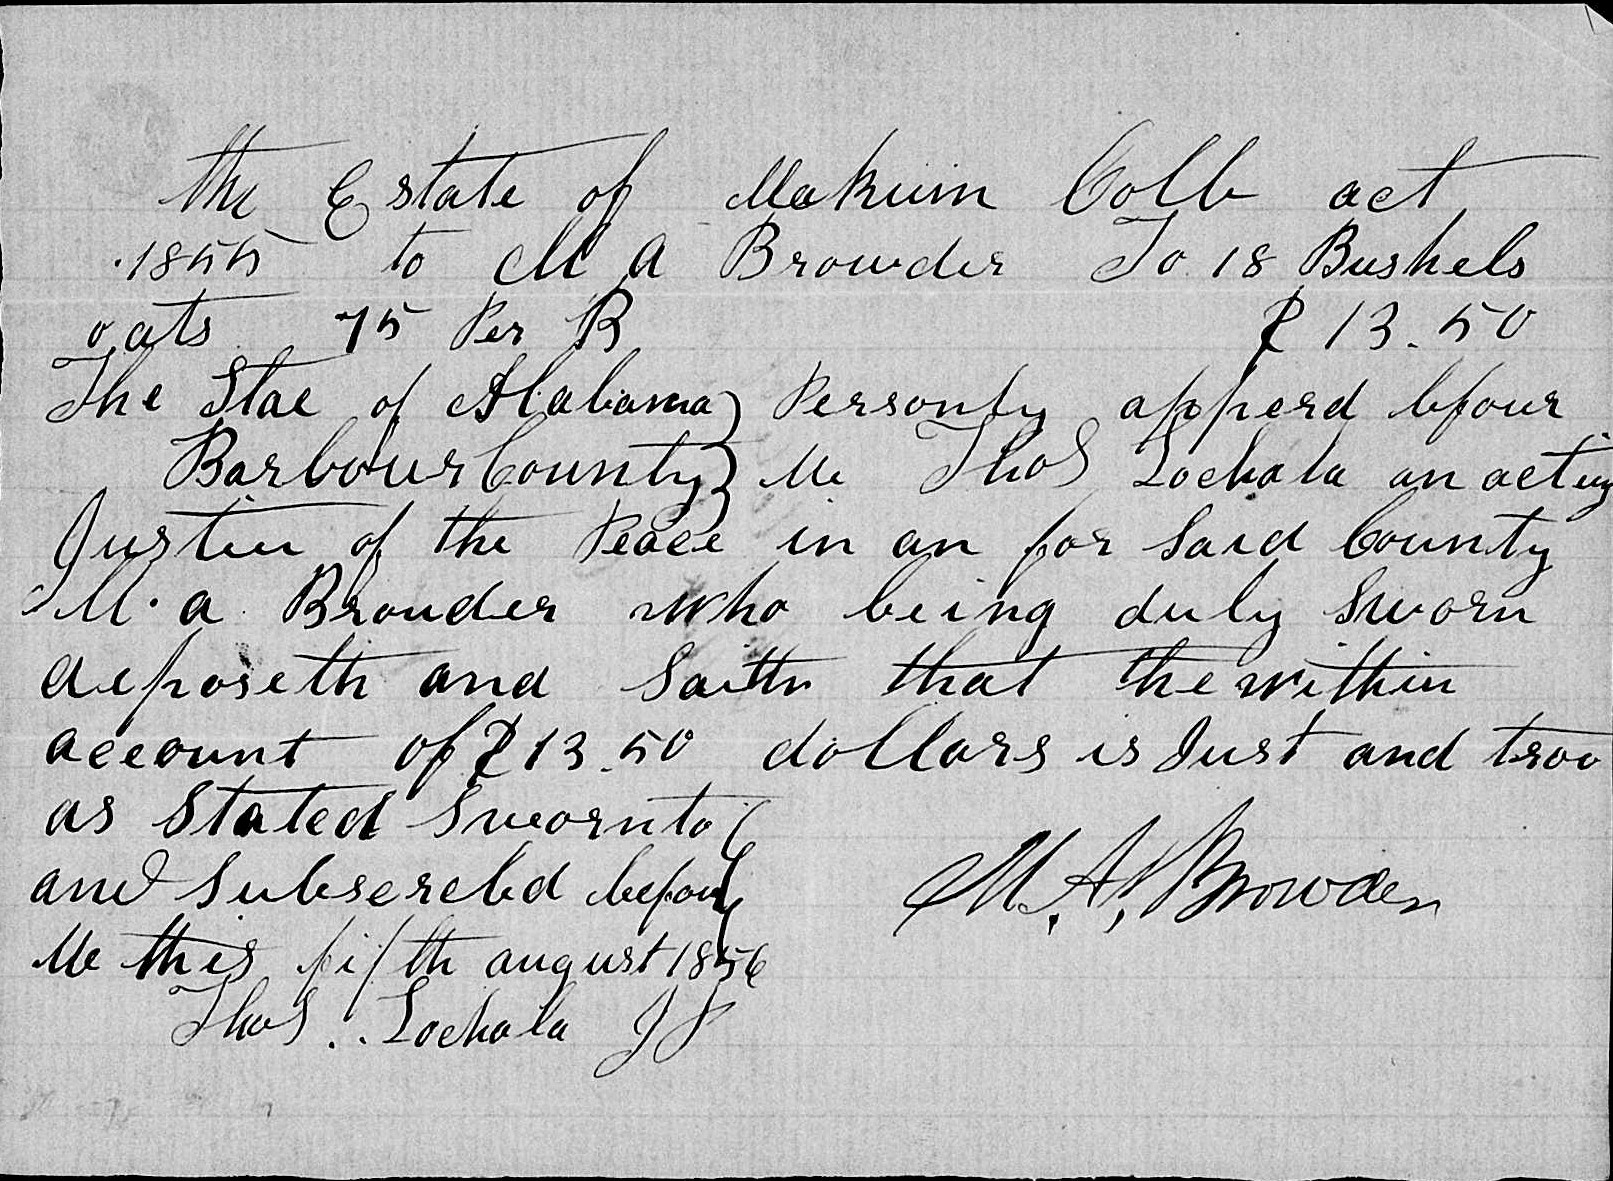 the Estate of Makuin Cobb act
1855 to M A Browder To 18 Bushels
oats 75 Per B $13.50
The Stae of Alabama } Personly apperd bfour
Barbour County } Me Thos Lockala an acting
Justice of the Peace in an for Said County
M. a Browder who being duly Sworn
deposeth and Saith that the within
account of $13.50 dollars is Just and troo
as Stated Sworn to
and Subscrebd before
Me this fifth august 1856
Thos.. Lockala JP
M. A. Browder